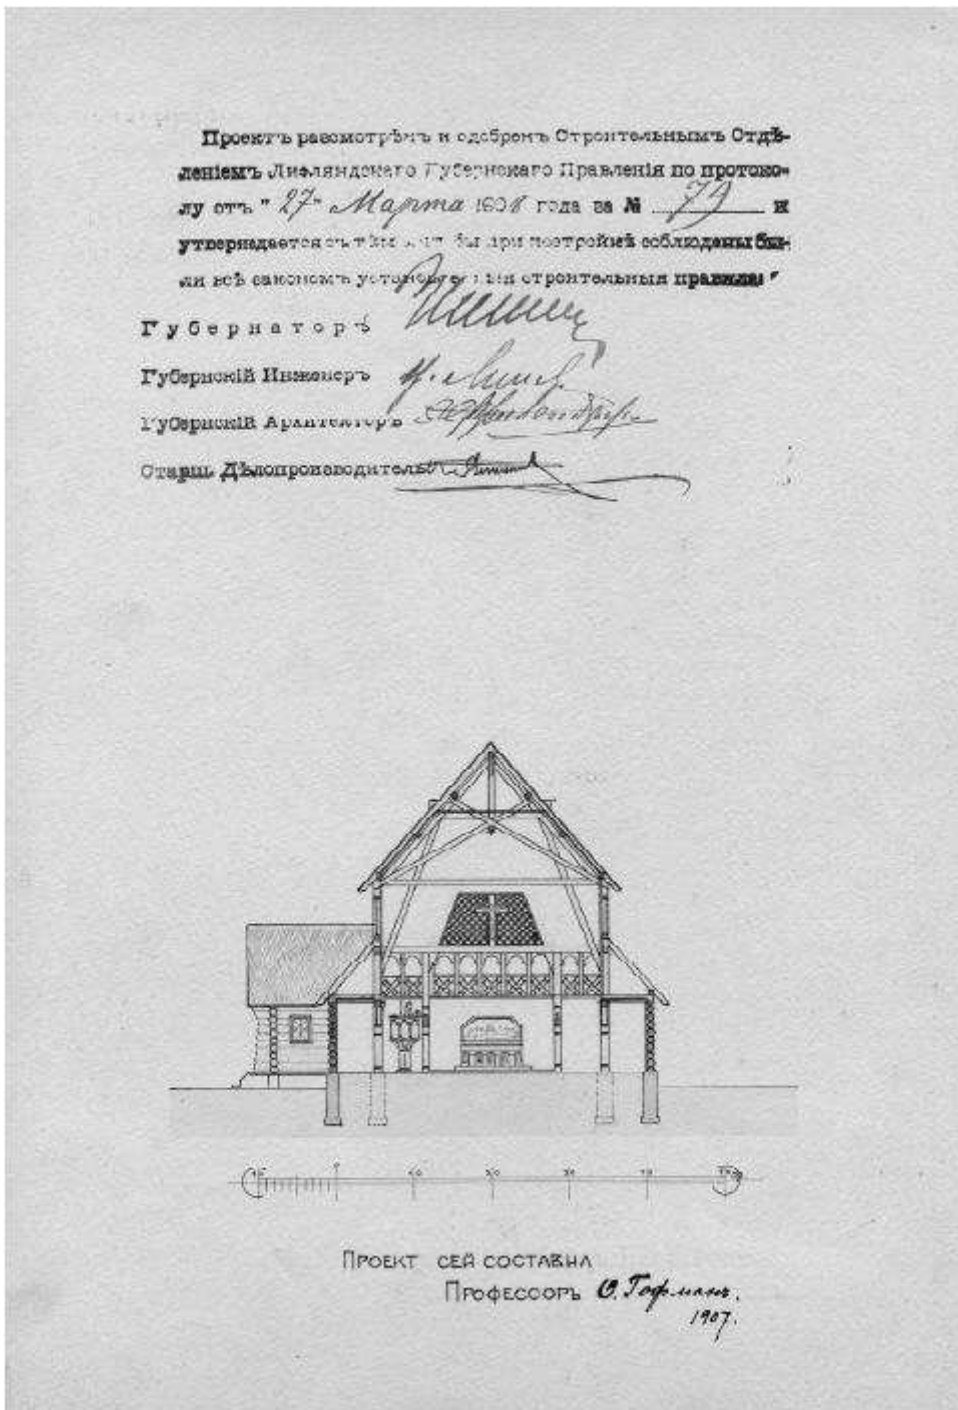 Проектъ разсмотрѣнъ и одобренъ Строительнымъ Отдѣ-
леніемъ Лифляндскаго Губернскаго Правленія по протоко-
лу отъ "27" Марта 1908 года за № 79 и
утверждается съ тѣм бы при постройкѣ соблюдены бы-
ли всѣ закономъ установленныя строительныя правила"
Губернаторъ
Губернскій Инженеръ
Губернскій Архитекторъ
Старш. Дѣлопроизводитель
10 0 10 20 30
Проект сей составил
Профессоръ О. Гофманъ.
1907.